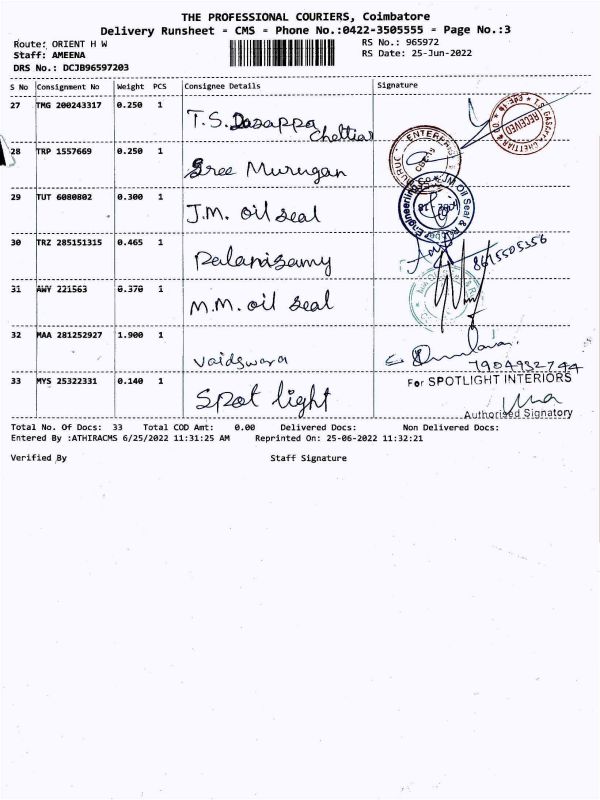 THE PROFESSIONAL COURIERS, Coimbatore
Delivery Runsheet - CMS - Phone No.:0422-3505555 - Page No.:3
Route: ORIENT H W
RS No.: 965972
Staff: AMEENA
RS Date: 25-Jun-2022
DRS No.: DCJB96597203
S No Consignment No Weight PCS Consignee Details Signature
27 TMG 200243317 0.250 1 T.S. Dasappa Chettiar
RECEIVED
28 TRP 1557669 0.250 1 Sree Murugan
29 TUT 6080802 0.300 1 J.M. oil seal
JM Oil Seal &
Engineering
30 TRZ 285151315 0.465 1 Palanisamy
31 AWY 221563 0.370 1 M.M. oil seal
32 MAA 281252927 1.900 1 Vaidswara
7904932744
33 MYS 25322331 0.140 1 Spot light
For SPOTLIGHT INTERIORS
Authorised Signatory
Total No. Of Docs: 33 Total COD Amt: 0.00 Delivered Docs: Non Delivered Docs:
Entered By :ATHIRACMS 6/25/2022 11:31:25 AM Reprinted On: 25-06-2022 11:32:21
Verified By Staff Signature